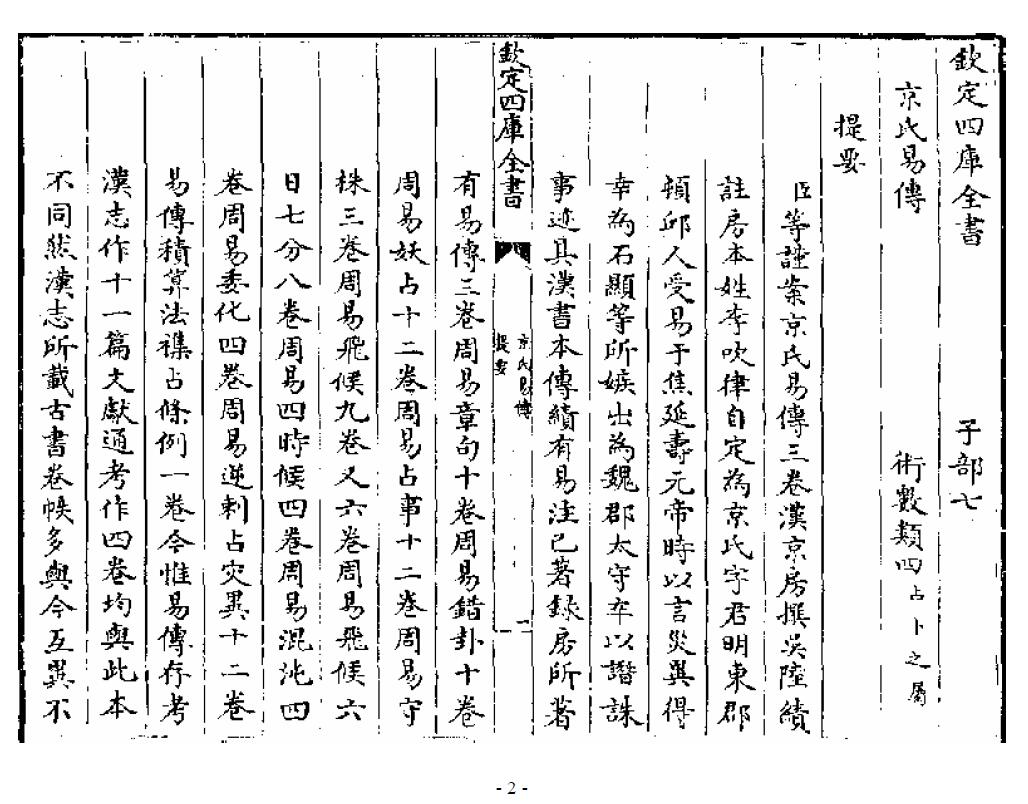 欽定四庫全書 子部七
京氏易傳 術數類四占卜之屬
提要
臣等謹案京氏易傳三卷漢京房撰吳陸績
註房本姓李吹律自定為京氏字君明東郡
頓邱人受易于焦延壽元帝時以言災異得
幸為石顯等所嫉出為魏郡太守卒以譖誅
事迹具漢書本傳績有易注已著錄房所著
欽定四庫全書 京氏易傳 提要 一
有易傳三卷周易章句十卷周易錯卦十卷
周易妖占十二卷周易占事十二卷周易守
株三卷周易飛候九卷又六卷周易飛候六
日七分八卷周易四時候四卷周易混沌四
卷周易委化四卷周易逆刺占灾異十二卷
易傳積算法襍占條例一卷今惟易傳存考
漢志作十一篇文獻通考作四卷均與此本
不同然漢志所載古書卷帙多與今互異不
- 2 -